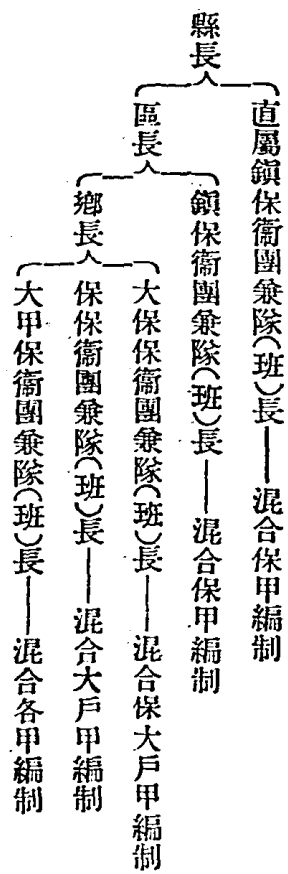 縣長
直屬鎮保衞團兼隊(班)長——混合保甲編制
區長
鎮保衞團兼隊(班)長——混合保甲編制
鄉長
大保保衞團兼隊(班)長——混合保大戶甲編制
保保衞團兼隊(班)長——混合大戶甲編制
大甲保衞團兼隊(班)長——混合各甲編制